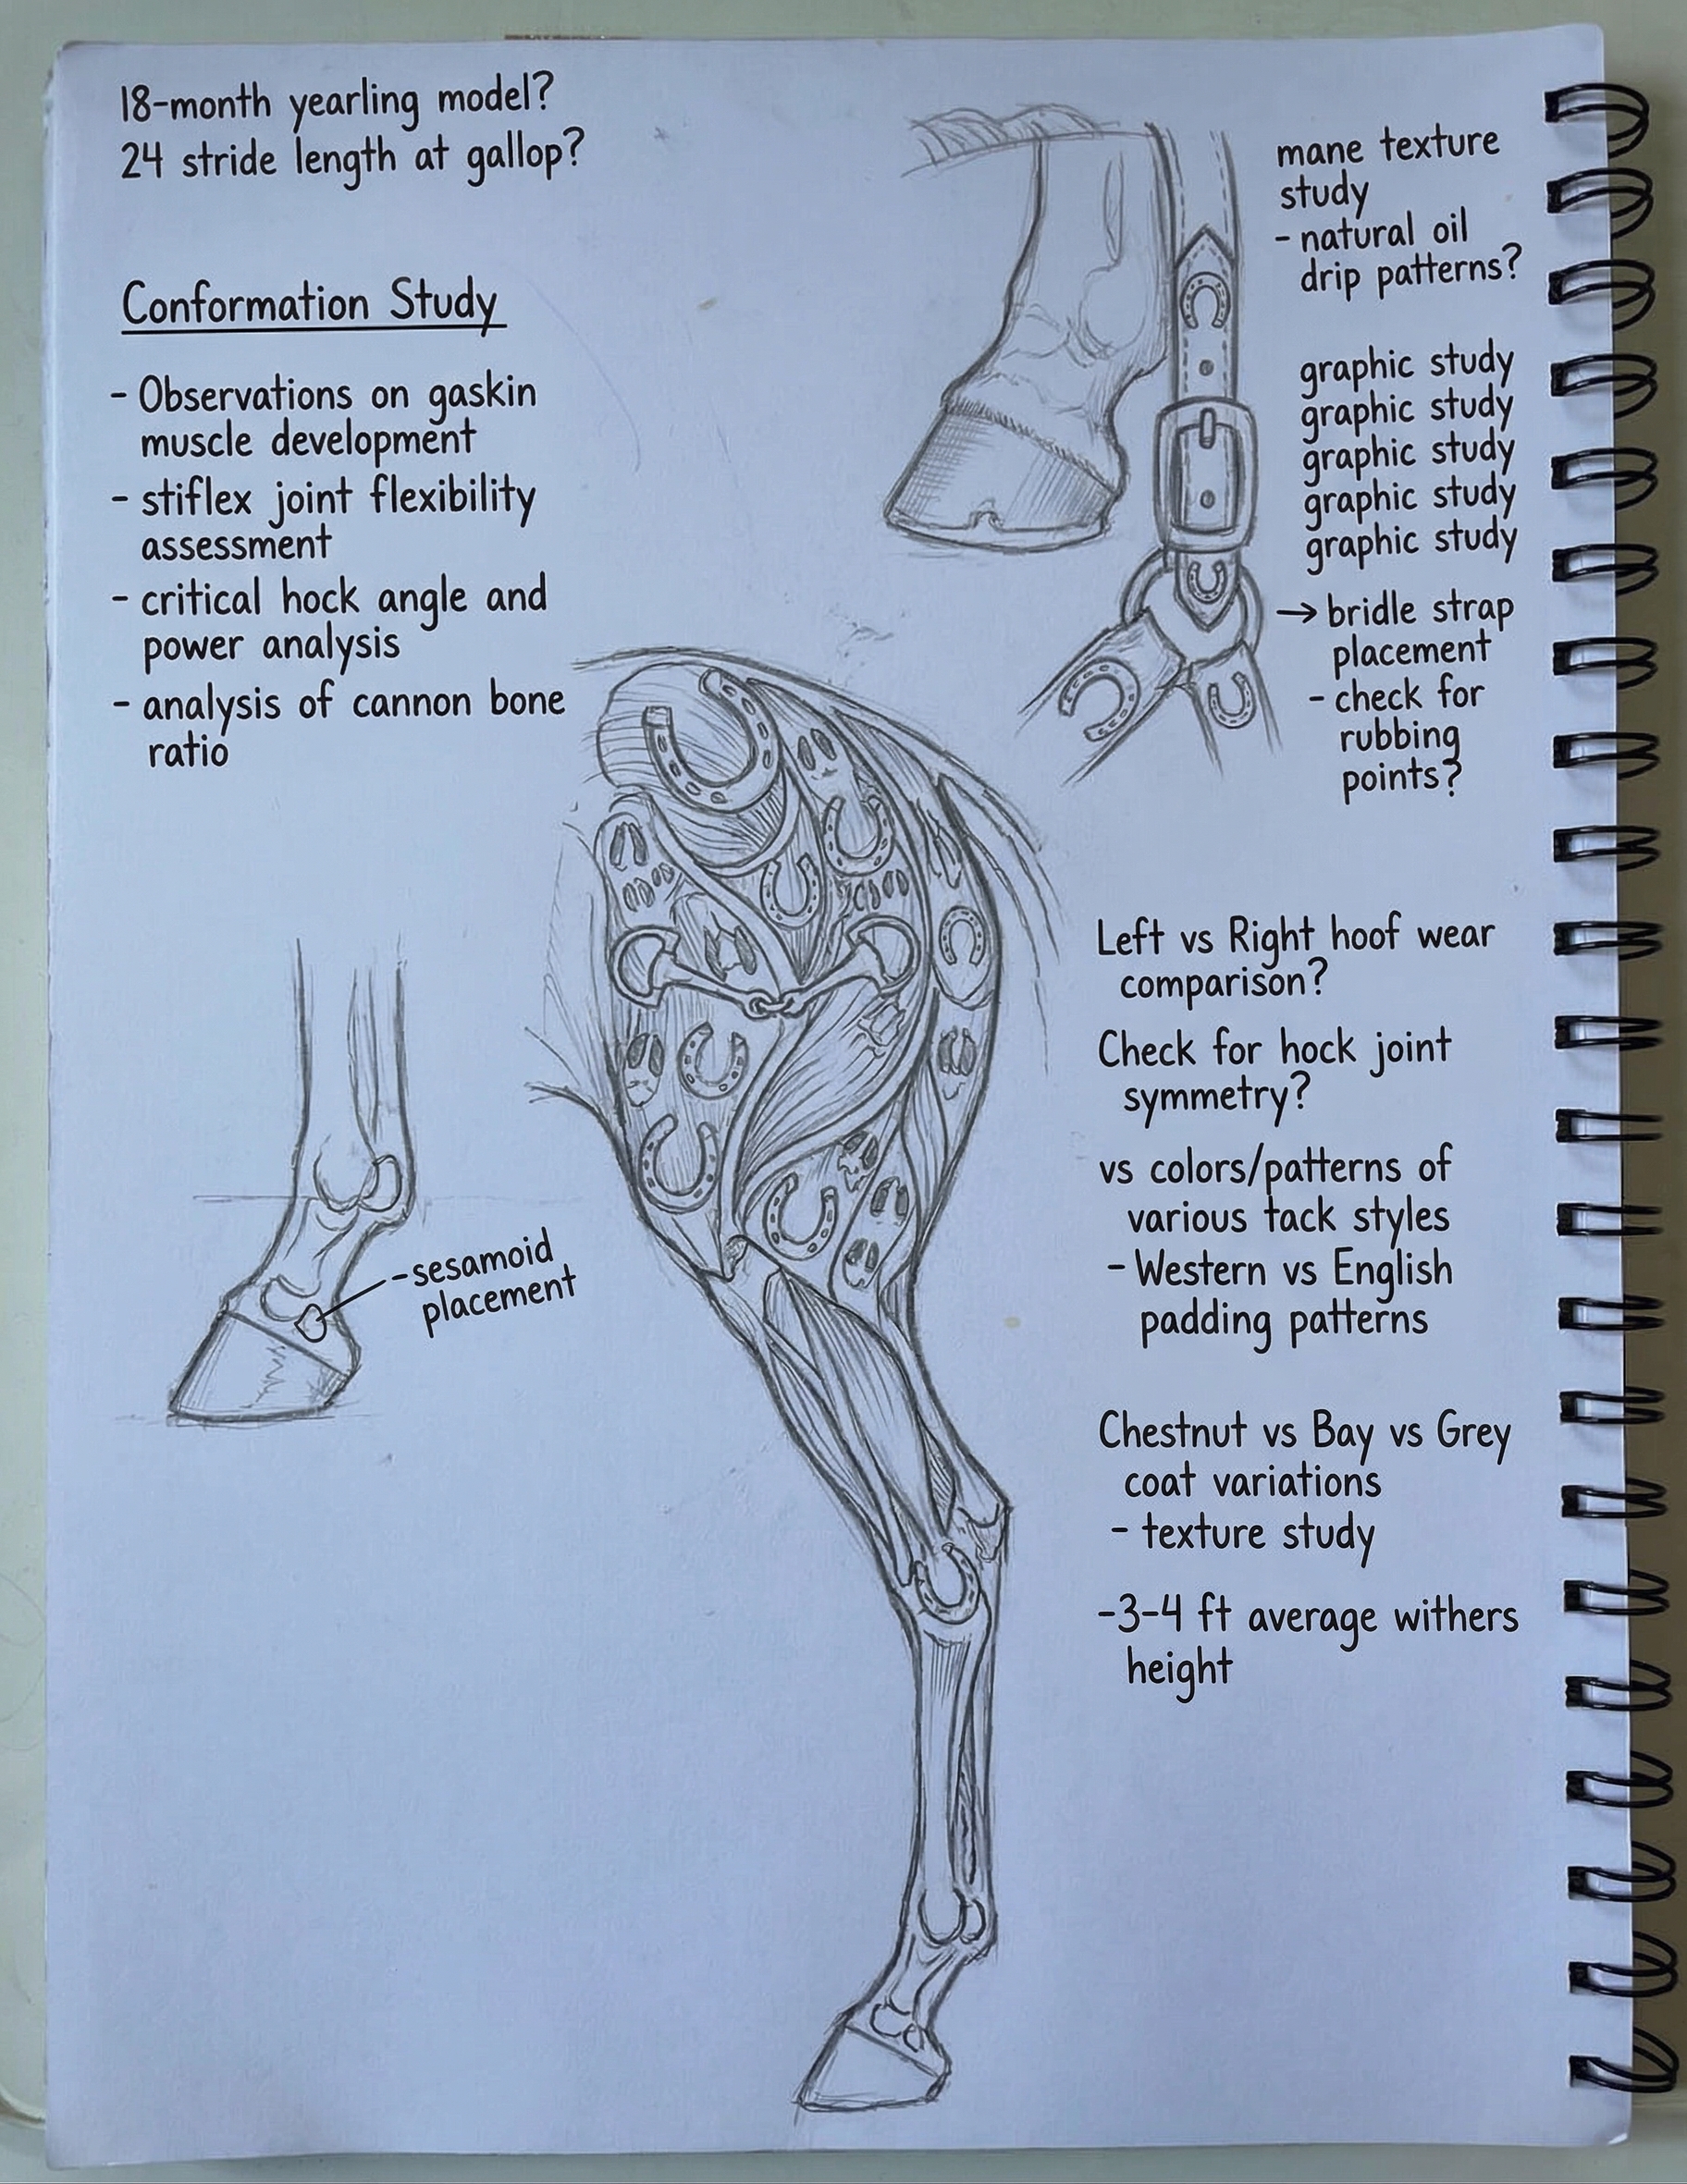 18-month yearling model?
24 stride length at gallop?
Conformation Study
- Observations on gaskin
muscle development
- stiflex joint flexibility
assessment
- critical hock angle and
power analysis
- analysis of cannon bone
ratio
- sesamoid
placement
mane texture
study
- natural oil
drip patterns?
graphic study
graphic study
graphic study
graphic study
graphic study
→ bridle strap
placement
- check for
rubbing
points?
Left vs Right hoof wear
comparison?
Check for hock joint
symmetry?
vs colors/patterns of
various tack styles
- Western vs English
padding patterns
Chestnut vs Bay vs Grey
coat variations
- texture study
-3-4 ft average withers
height